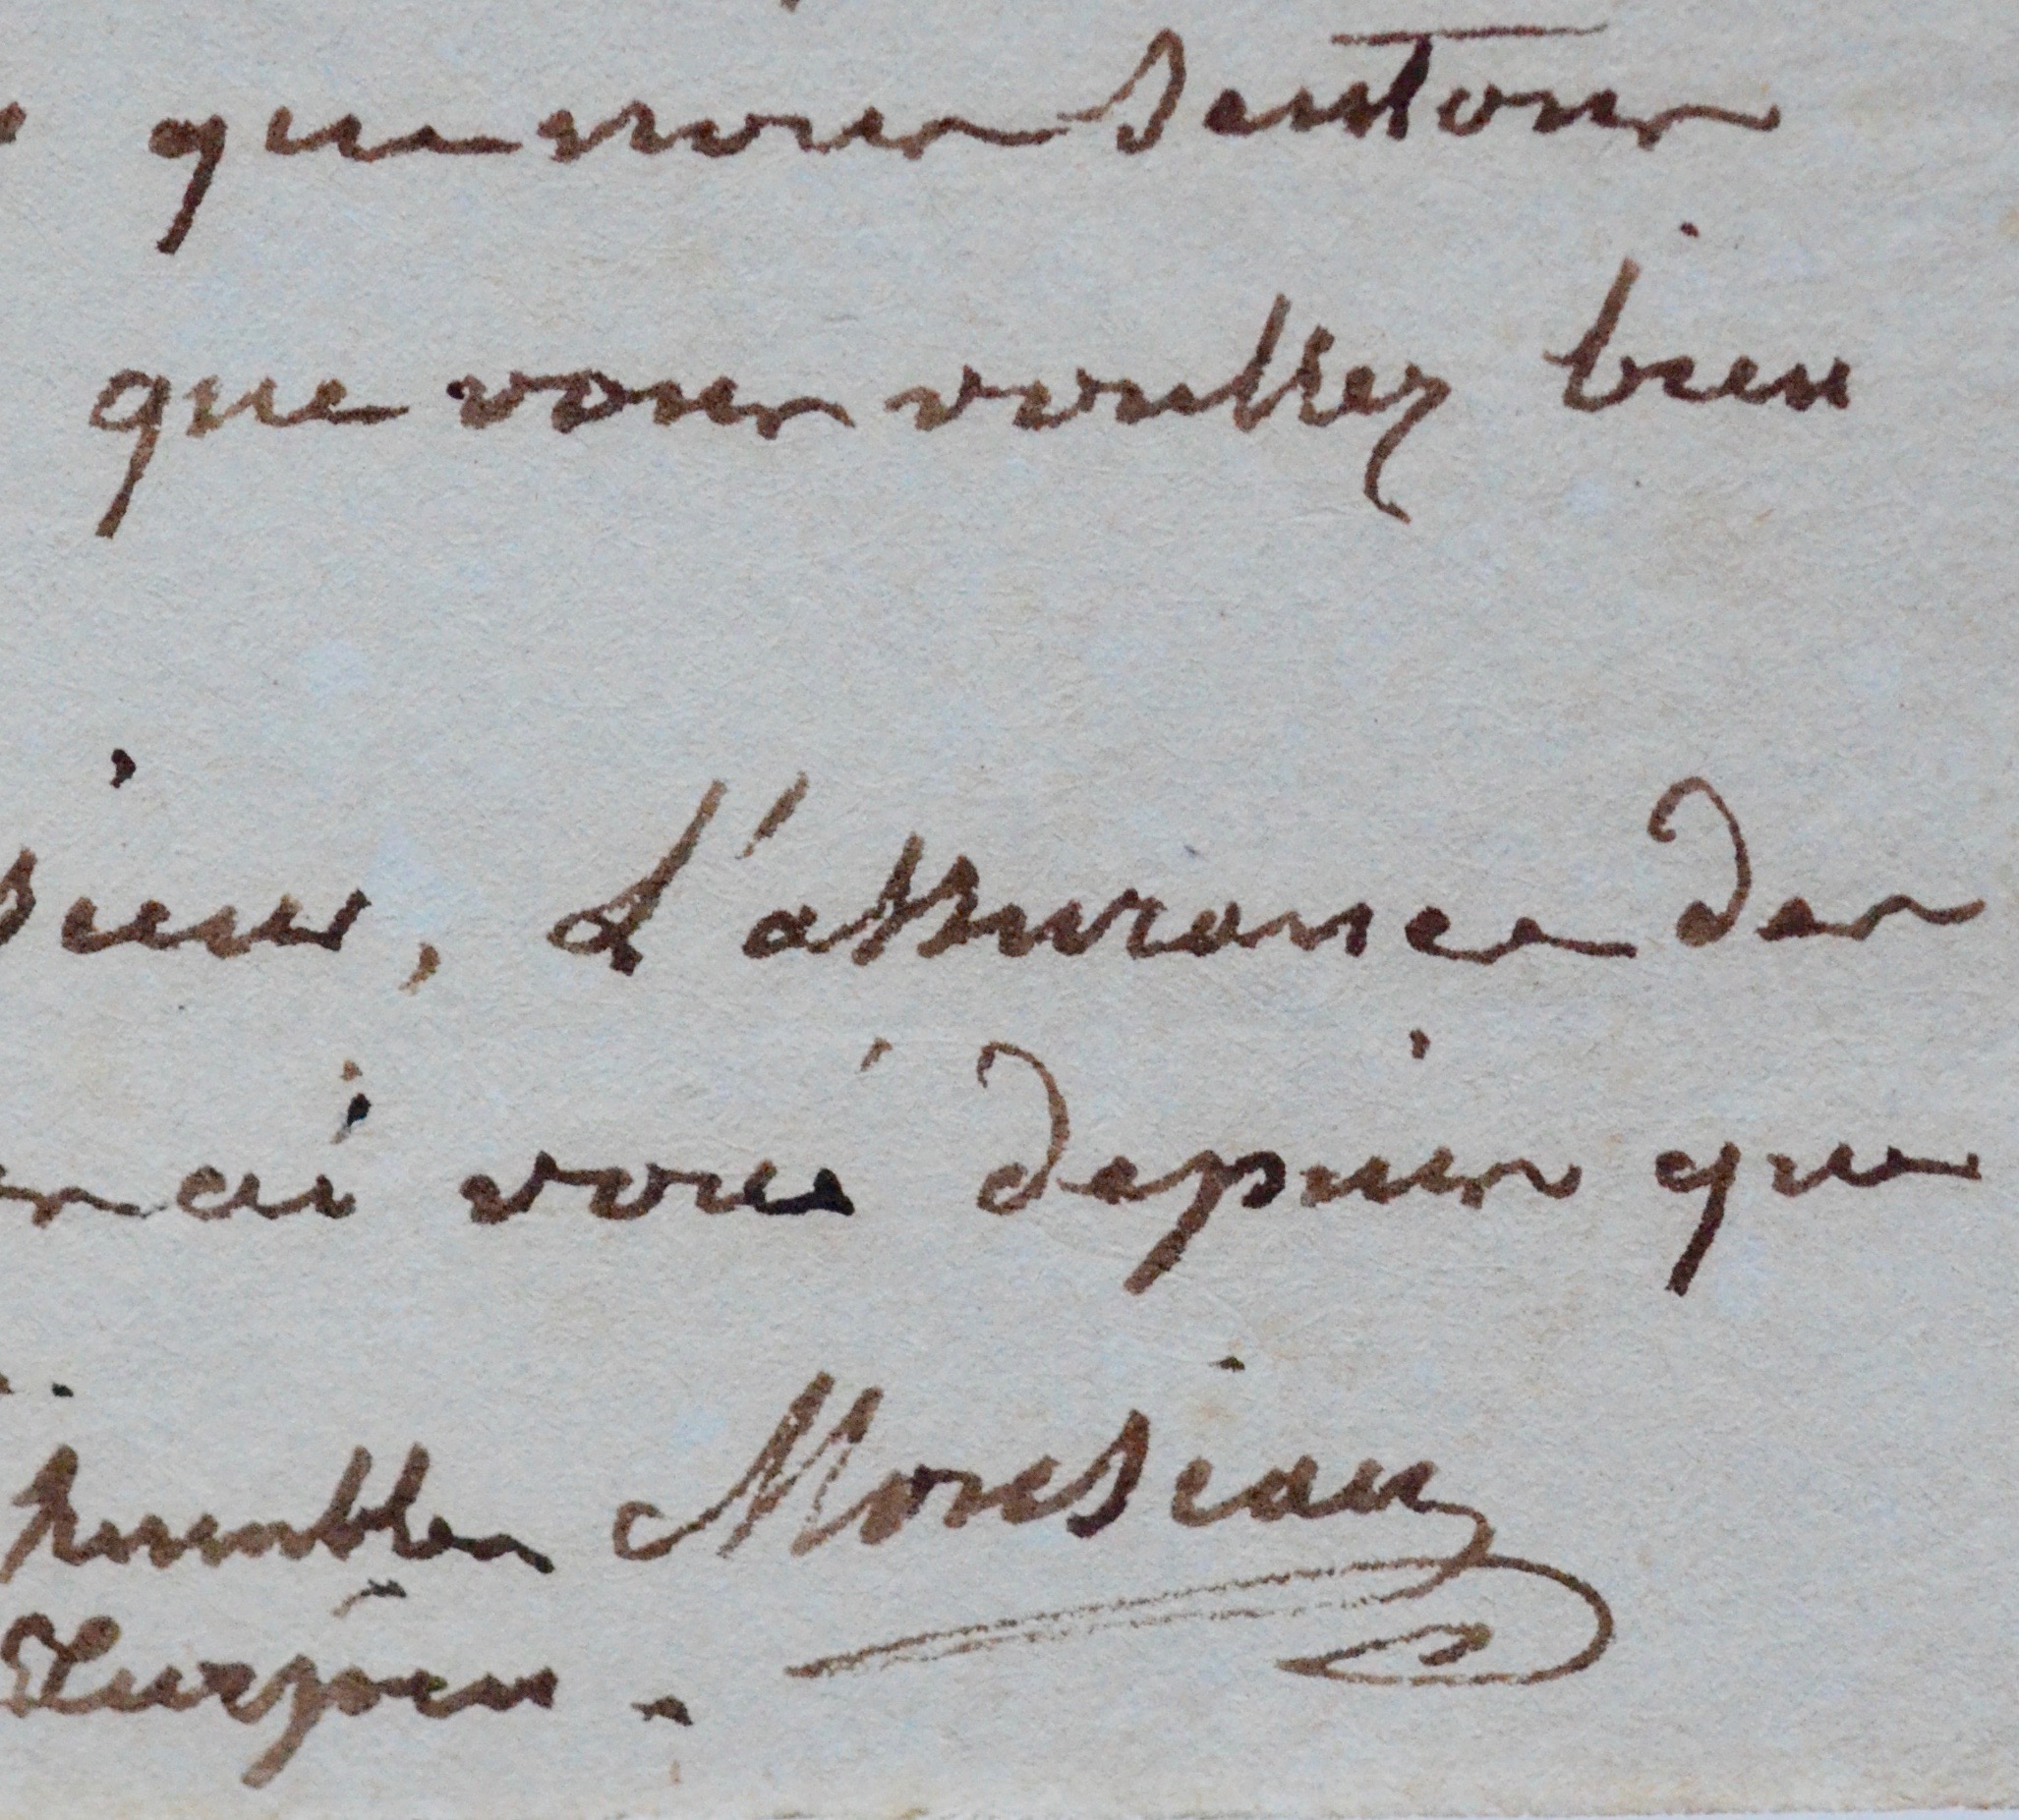 que nous sentons
que vous voulussiez bien
sieur, L'assurance des
ai voué depuis que
humbles Monsiau
Turpin.